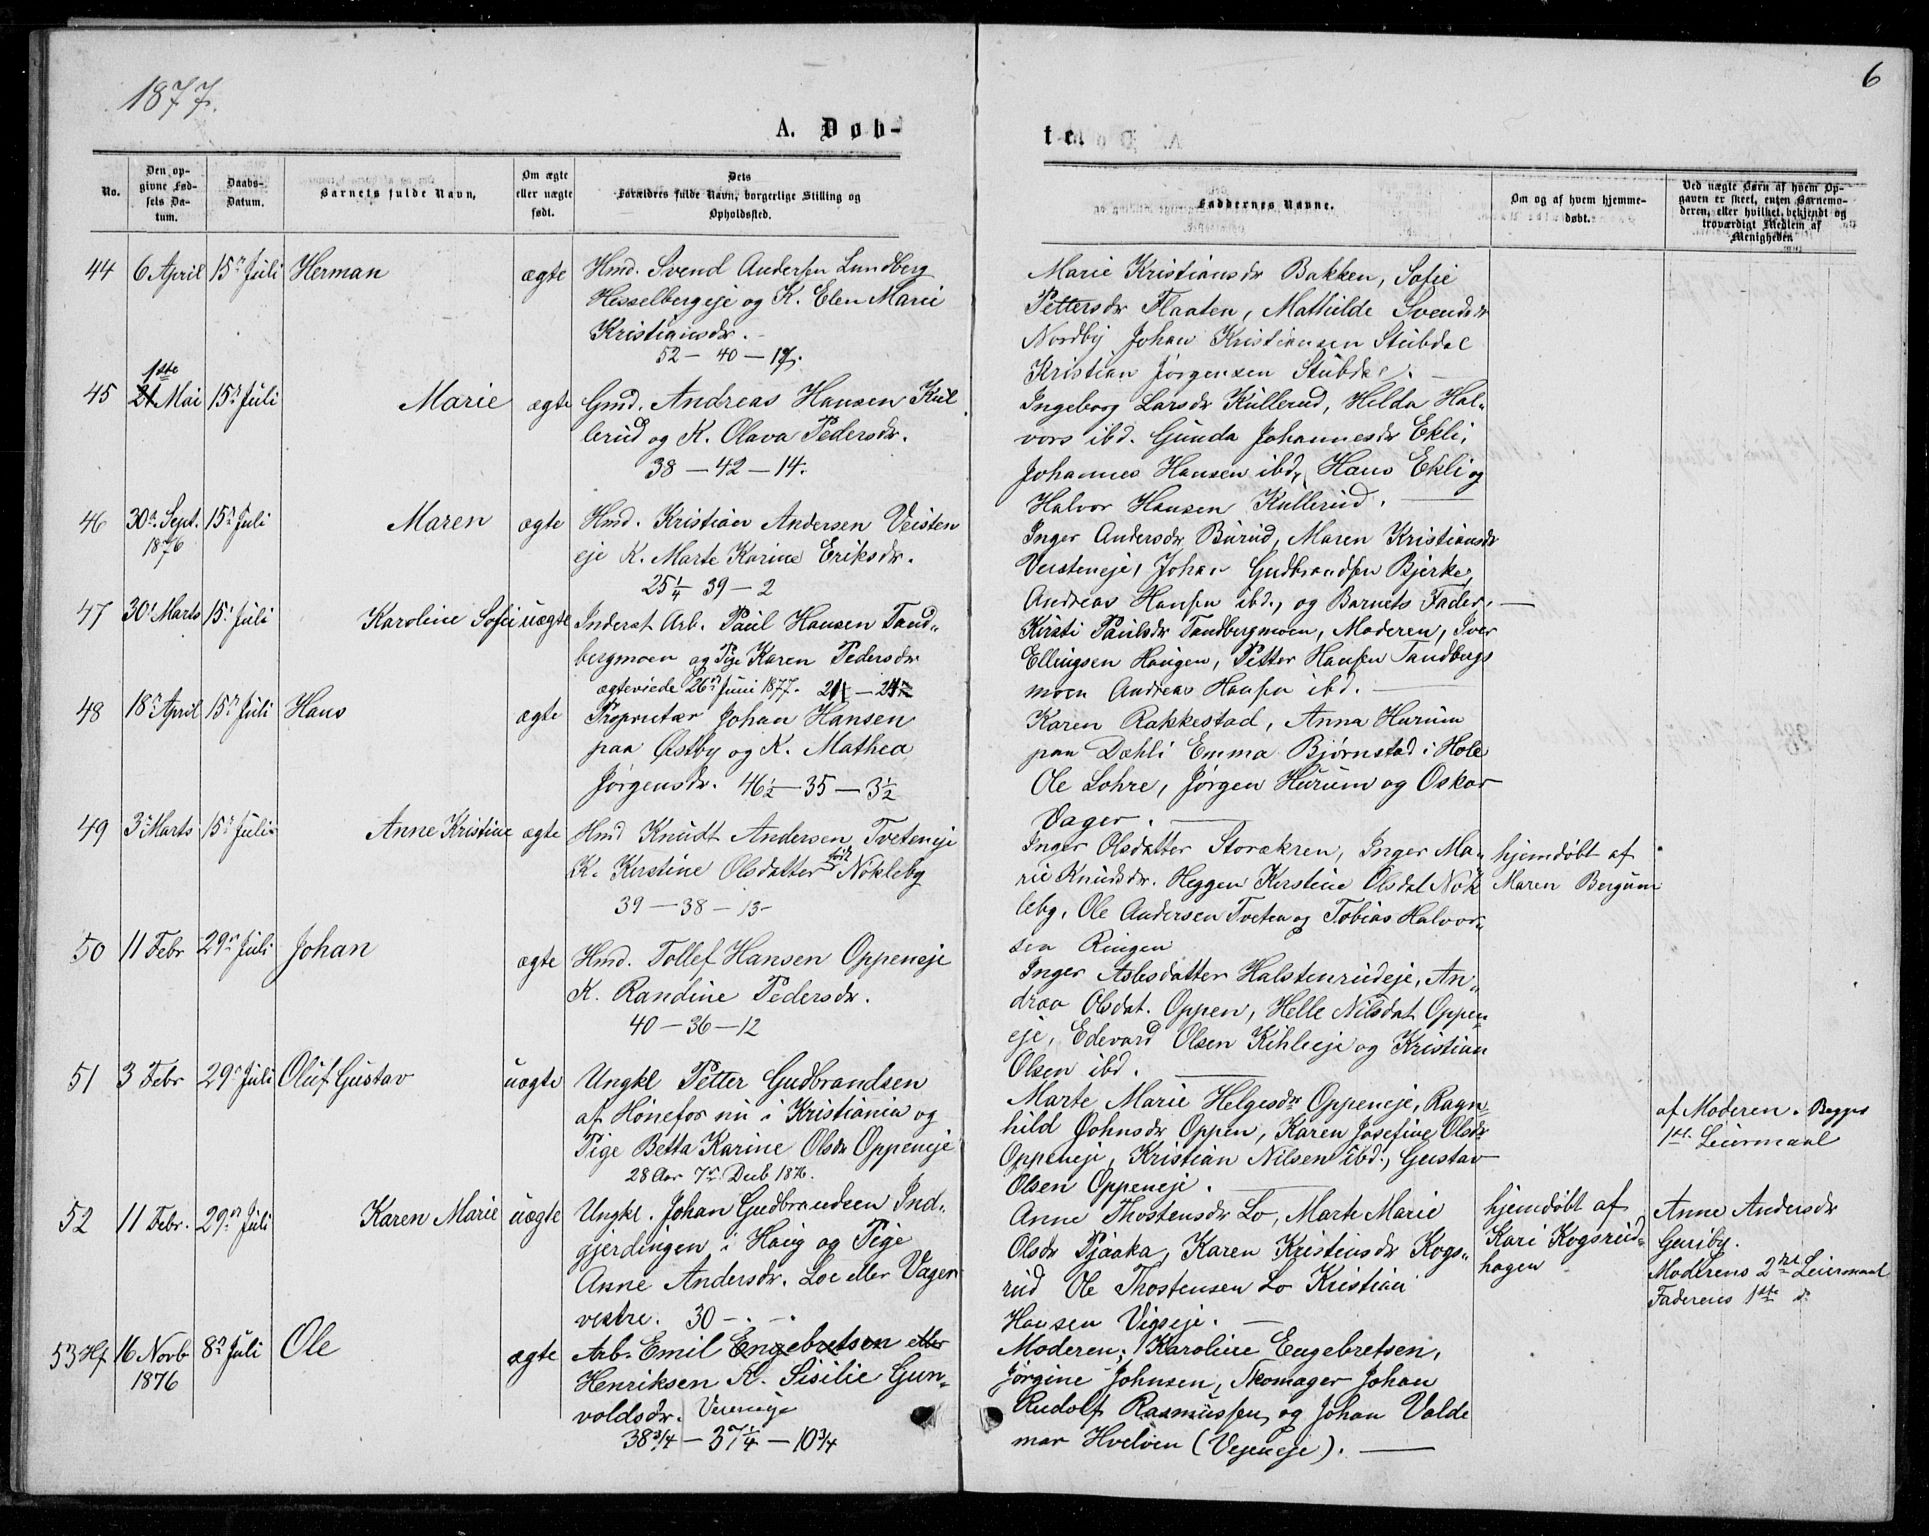 1877.
6
A. Døb-
te
No.
Den opgivne Fødsels Datum.
Daabs-Datum.
Barnets fulde Navn.
Om ægte eller uægte født.
Dets Forældres fulde Navn, borgerlige Stilling og Opholdssted.
Faddernes Navne.
Om og af hvem hjemmedøbt.
Ved uægte Børn af hvem Opgaven er skeet, enten Barnemoderen, eller hvilket bekjendt og troværdigt Medlem af Menigheden
44 6 April 15n Juli Herman ægte Hmd. Svend Andersen Lundberg
Hesselbergeje og K. Elen Marie
Kristiansdr.
52 - 40 - 17.
Marie Kristiansdr Bakken, Sofie
Pettersdr Flaaten, Mathilde Svendsdr
Nordby Johan Kristiansen Stubdal
Kristian Jørgensen Stubdal.
45 1ste 21 Mai 15n Juli Marie ægte Gmd. Andreas Hansen Kul
lerud og K. Olava Pedersdr.
38 - 42 - 14.
Ingeborg Larsdr Kullerud, Helda Hal-
vors ibd. Gunda Johannesdr Ekli,
Johannes Hansen ibd, Hans Ekli og
Halvor Hansen Kullerud.
46 30n Sept. 1876 15n Juli Maren ægte Hmd. Kristian Andersen Veisten
eje K. Marte Karine Eriksdr.
25 1/4 39 - 2
Inger Andersdr Burud, Maren Kristiansdr
Veisteneje, Johan Gudbrandsen Bjerke,
Andreas Hansen ibd., og Barnets Fader.
47 30n Marts 15n Juli Karoline Sofie uægte Inderst Arb. Paul Hansen Tand-
bergmoen og Pige Karen Pedersdr
ægteviede 26n Juni 1877.
Kirsti Paulsdr Tandbergmoen, Moderen, Iver
Ellingsen Haugen, Petter Hansen Tandbergs
moen Andreas Hansen ibd.
48 18n April 15n Juli Hans ægte Proprietær Johan Hansen
paa Østby og K. Mathea
Jørgensdr. 46 1/2 - 35 - 3 1/2
Karen Rakkestad, Anna Hurum
paa Dæhli Emma Bjørnstad i Hole
Ole Lohre, Jørgen Hurum og Oskar
Vager.
49 3n Marts 15n Juli Anne Kristine ægte Hmd Knudt Andersen Tveteneje
K. Kirstine Olsdatter født Nökleby
39 - 38 - 13
Inger Olsdatter Storøkren, Inger Ma-
rie Knudsdr. Heggen Kirstine Olsdat Nök
leby, Ole Andersen Tveten og Tobias Halvor-
sen Ringen
hjemdøbt af
Maren Bergum
50 11 Febr 29n Juli Johan ægte Hmd. Tollef Hansen Oppeneje
K. Randine Pedersdr.
40 - 36 - 12
Inger Aslesdatter Halstenrudeje, An-
drea Olsdat. Oppen, Helle Nilsdat Oppen-
eje, Edevard Olsen Kihleeje og Kristian
Olsen ibd.
51 3 Febr 29n Juli Oluf Gustav uægte Ungkl Petter Gudbrandsen
af Hønefos nu i Kristiania og
Pige Betta Karine Olsdr Oppeneje
28 Aar 7n Decb 1876.
Marte Marie Helgesdr Oppeneje, Ragn-
hild Johnsdr Oppen, Karen Josefine Olsdr
Oppeneje, Kristian Nilsen ibd., Gustav
Olsen Oppeneje.
af Moderen. Begges
1ste Leiermaal
52 11 Febr. 29n Juli Karen Marie uægte Ungkl. Johan Gudbrandsen Ind-
gjerdingen i Haug og Pige
Anne Andersdr. Loe eller Vager
vestre. 30 - . -
Anne Thostensdr Lo, Marte Marie
Olsdr Pjaaka, Karen Kristinsdr Kogs-
rud Ole Thostensen Lo Kristian
Hansen Vigseje.
hjemdøbt af
Kari Kogsrud-
hagen
Anne Andersdr
Guriby.
Moderens 2net Leiermaal
Faderens 1ste do
53 Hf 16 Novb 1876 8n Juli Ole ægte Arb. Emil Engebretsen eller
Henriksen K. Sisilie Gun-
voldsdr. Veieneje
38 3/4 - 37 1/4 - 10 3/4
Moderen; Karoline Engebretsen,
Jørgine Johnsen, Skomager Johan
Rudolf Rasmussen, og Johan Valde
mar Hvelven (Vejeneje).